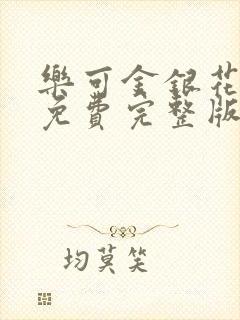 樂可金銀花
免費完整版
均莫笑